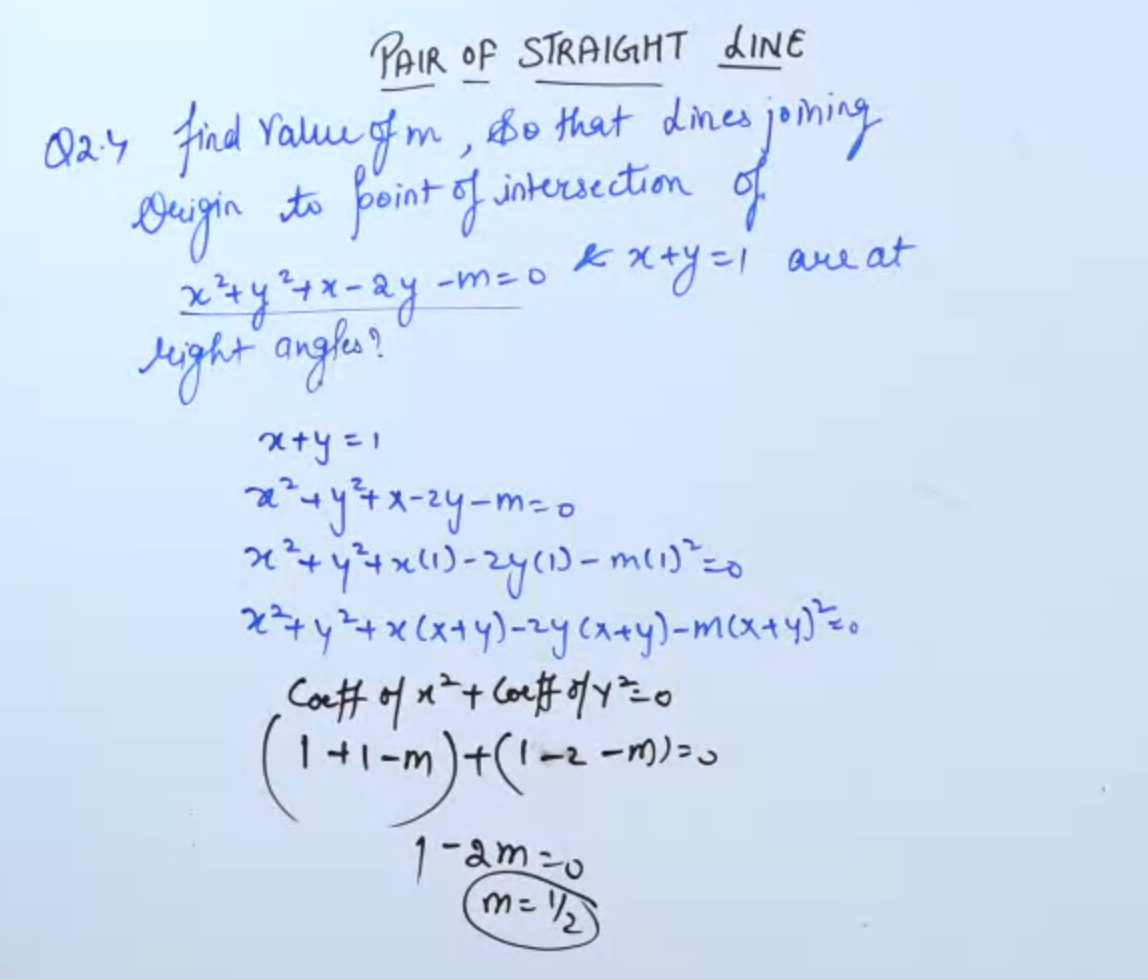 PAIR OF STRAIGHT LINE
Q2.4 find value of m, so that Lines joining
Origin to point of intersection of
x²+y²+x-2y-m=0 & x+y=1 are at
right angles?
x+y=1
x²+y²+x-2y-m=0
x²+y²+x(1)-2y(1)-m(1)²=0
x²+y²+x(x+y)-2y(x+y)-m(x+y)²=0
Coeff of x²+Coeff of y²=0
(1+1-m)+(1-2-m)=0
1-2m=0
m=1/2